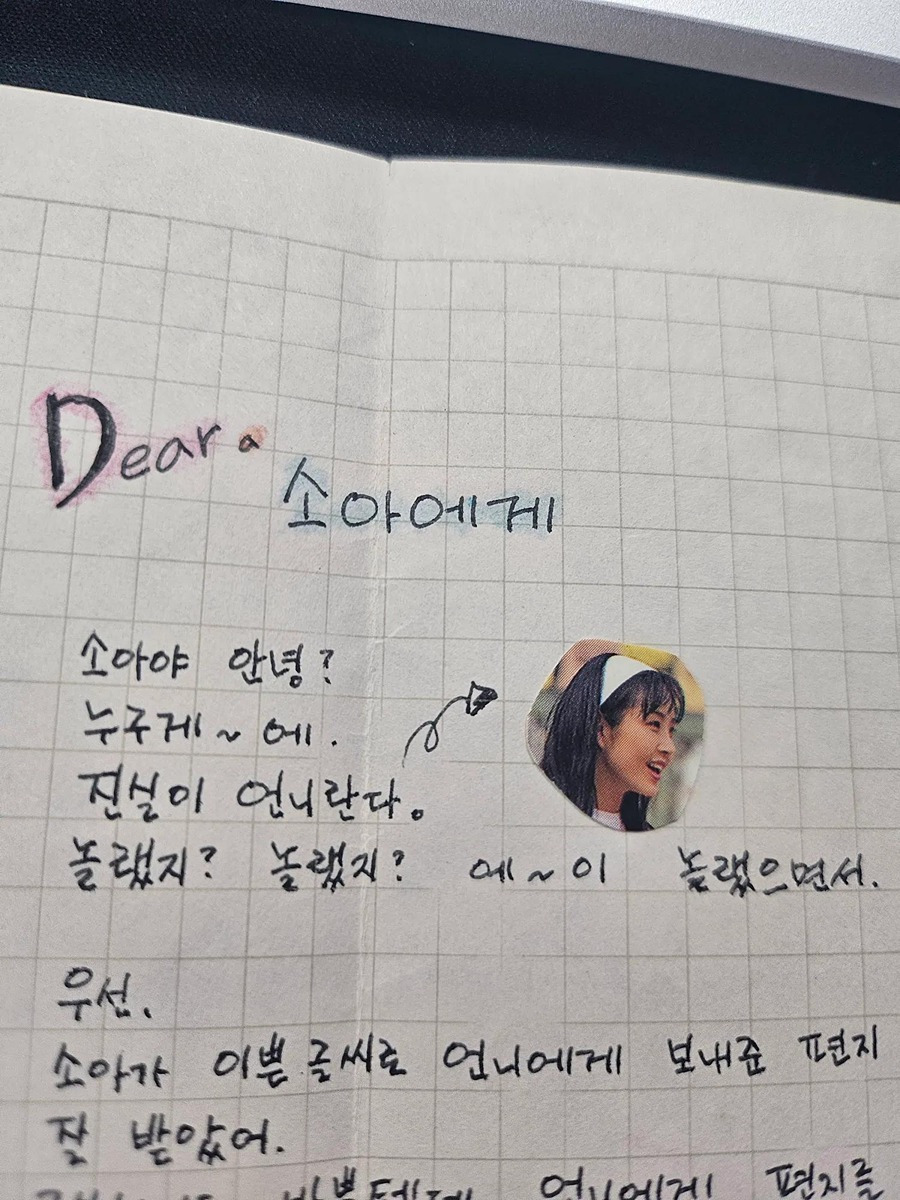 Dear a
소아에게
소아야 안녕?
누구게~ 에.
진실이 언니란다.
놀랬지? 놀랬지? 에~이 놀랬으면서.
우선.
소아가 이쁜 글씨로 언니에게 보내준 편지
잘 받았어.
언니에게 편지를